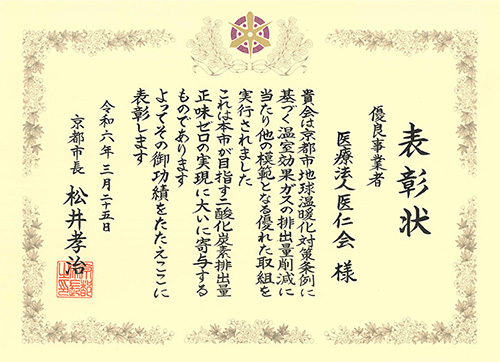 表彰状
優良事業者
医療法人医仁会 様
貴会は京都市地球温暖化対策条例に
基づく温室効果ガスの排出量削減に
当たり他の模範となる優れた取組を
実行されました
これは本市が目指す二酸化炭素排出量
正味ゼロの実現に大いに寄与する
ものであります
よってその御功績をたたえここに
表彰します
令和六年三月二十五日
京都市長 松井孝治